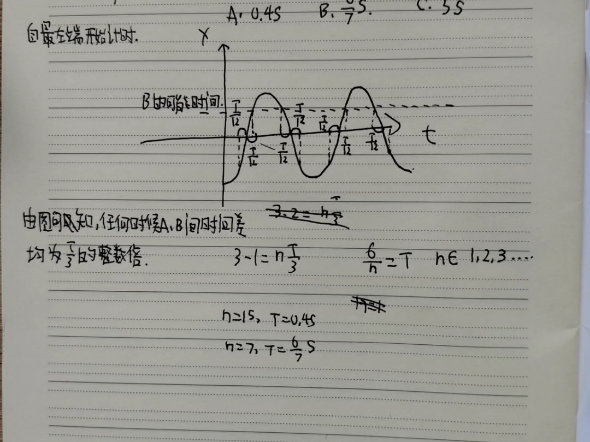 A. 0.4S B. 6/7 S. C. 5S
自最左端开始计时.
X
B的可能时间
T/12 T/12 T/12 T/12
T/12 T/12 T/12 T/12
t
由图可知,任何时候A、B间时间差
均为 T/3 的整数倍.
3-1=n T/3 6/n =T n∈ 1,2,3....
n=15, T=0.4S
n=7, T= 6/7 S